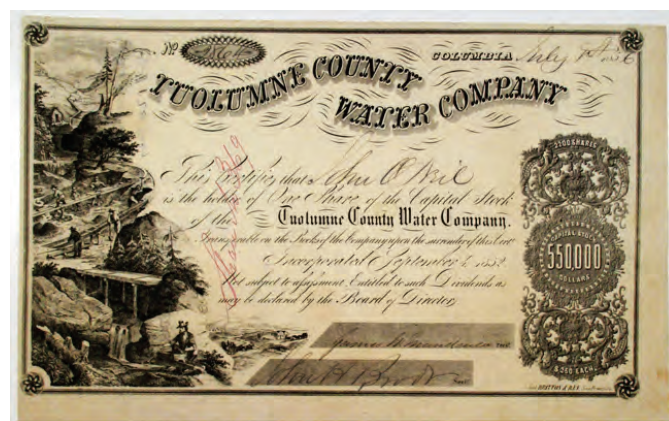 No
COLUMBIA July 1856
TUOLUMNE COUNTY
WATER COMPANY
This Certifies that John O'Neil
is the holder of One Share of the Capital Stock
of the Tuolumne County Water Company.
Transferable on the Books of the Company upon the surrender of this Cert
Incorporated September 1852.
Not subject to assessment Entitled to such Dividends as
may be declared by the Board of Directors
STOCK SHARES
CAPITAL STOCK
550,000
DOLLARS
$250 EACH
BRITTON & REY